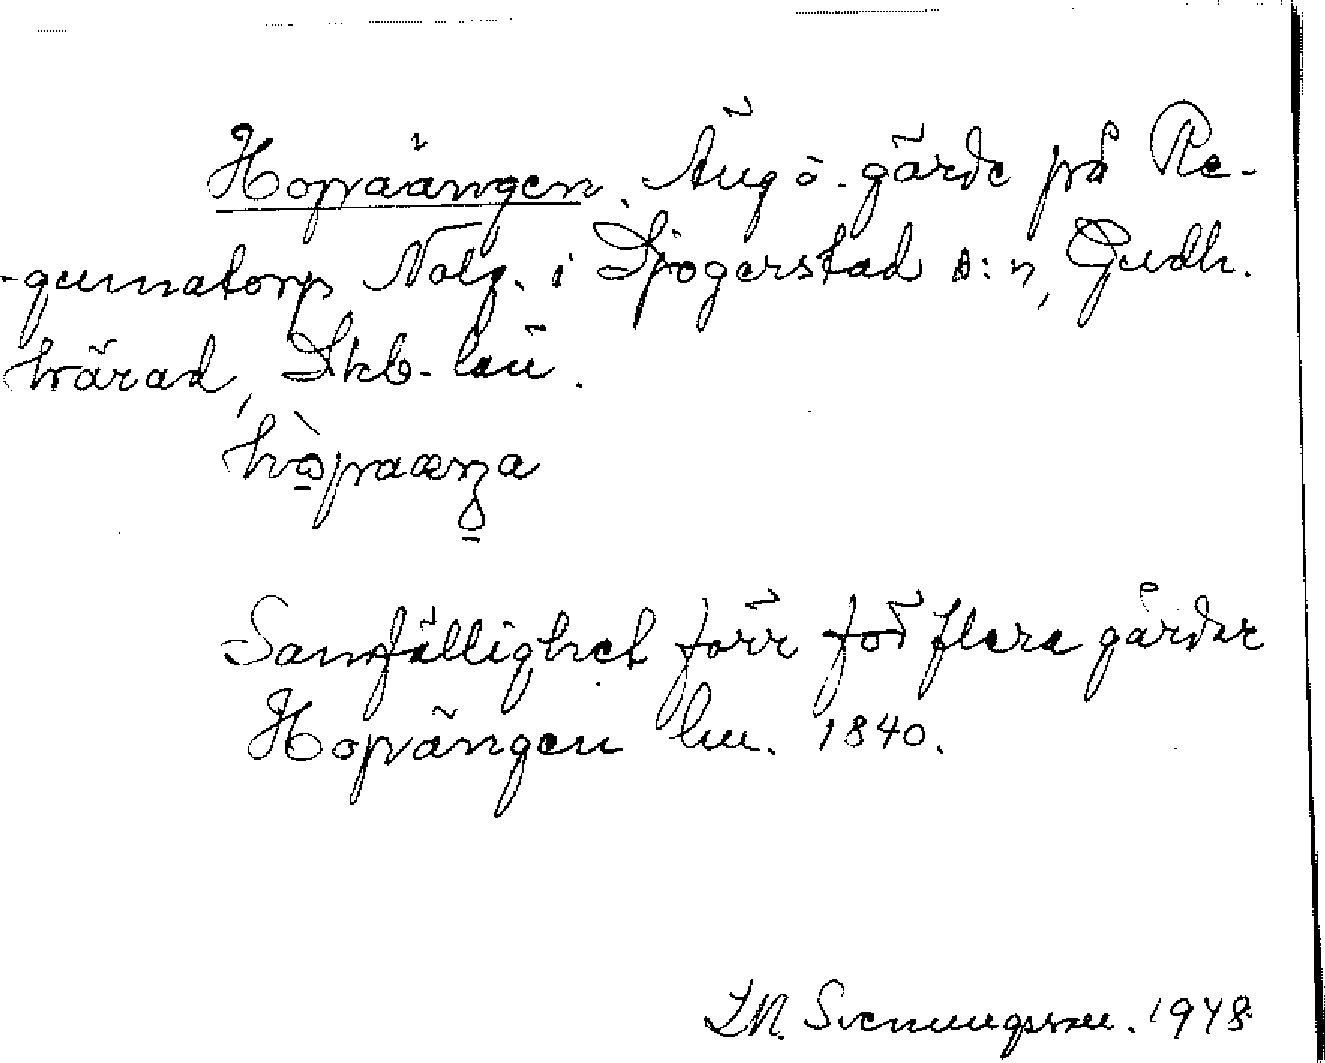 Hopaängen. Äng o. gärde på Re-
-gumatorp Nolg. i Sjogerstad s:n, Gudh.
härad, Skb-län.
hòpaæŋa
Samfällighet förr för flera gårdar
Hopängen lm. 1840.
I.M. Svenungsson. 1948